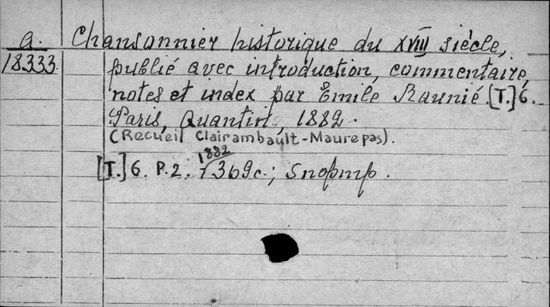 a. Chansonnier historique du XVIII siècle,
18333 publié avec introduction, commentaire,
notes et index par Emile Raunié. [T.] 6.
Paris, Quantin, 1882.
(Recueil Clairambault-Maurepas).
1882
[T.] 6. P. 2. 369c.; 5портр.